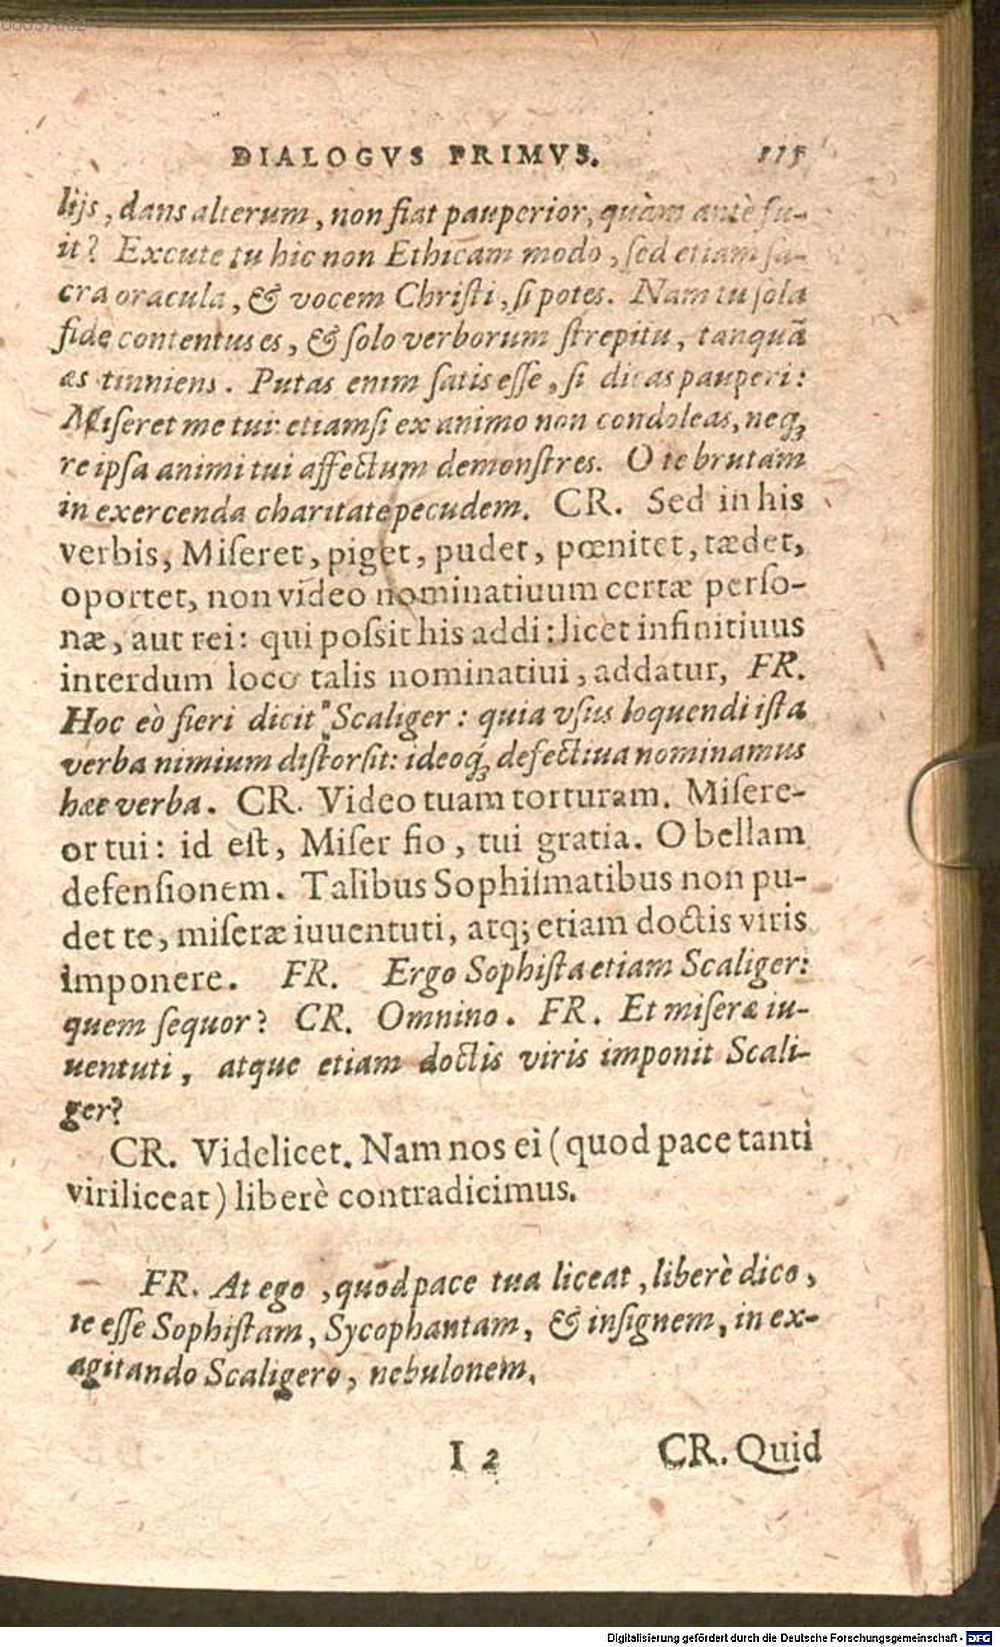 DIALOGVS PRIMVS. 115
lijs, dans alterum, non fiat pauperior, quàm antè fu-
it? Excute tu hic non Ethicam modo, sed etiam sa-
cra oracula, & vocem Christi, si potes. Nam tu sola
fide contentus es, & solo verborum strepitu, tanquã
æs tinniens. Putas enim satis esse, si dicas pauperi:
Miseret me tui: etiamsi ex animo non condoleas, neq;
re ipsa animi tui affectum demonstres. O te brutam
in exercenda charitate pecudem. CR. Sed in his
verbis, Miseret, piget, pudet, pœnitet, tædet,
oportet, non video nominatiuum certæ perso-
næ, aut rei: qui possit his addi: licet infinitiuus
interdum loco talis nominatiui, addatur, FR.
Hoc eò fieri dicit Scaliger: quia vsus loquendi ista
verba nimium distorsit: ideoq; defectiua nominamus
hæc verba. CR. Video tuam torturam. Misere-
or tui: id est, Miser fio, tui gratia. O bellam
defensionem. Talibus Sophismatibus non pu-
det te, miseræ iuuentuti, atq; etiam doctis viris
imponere. FR. Ergo Sophista etiam Scaliger:
quem sequor? CR. Omnino. FR. Et miseræ iu-
uentuti, atque etiam doctis viris imponit Scali-
ger?
CR. Videlicet. Nam nos ei (quod pace tanti
viri liceat) liberè contradicimus.
FR. At ego, quod pace tua liceat, liberè dico,
te esse Sophistam, Sycophantam, & insignem, in ex-
agitando Scaligero, nebulonem.
I 2 CR. Quid
Digitalisierung gefördert durch die Deutsche Forschungsgemeinschaft - DFG